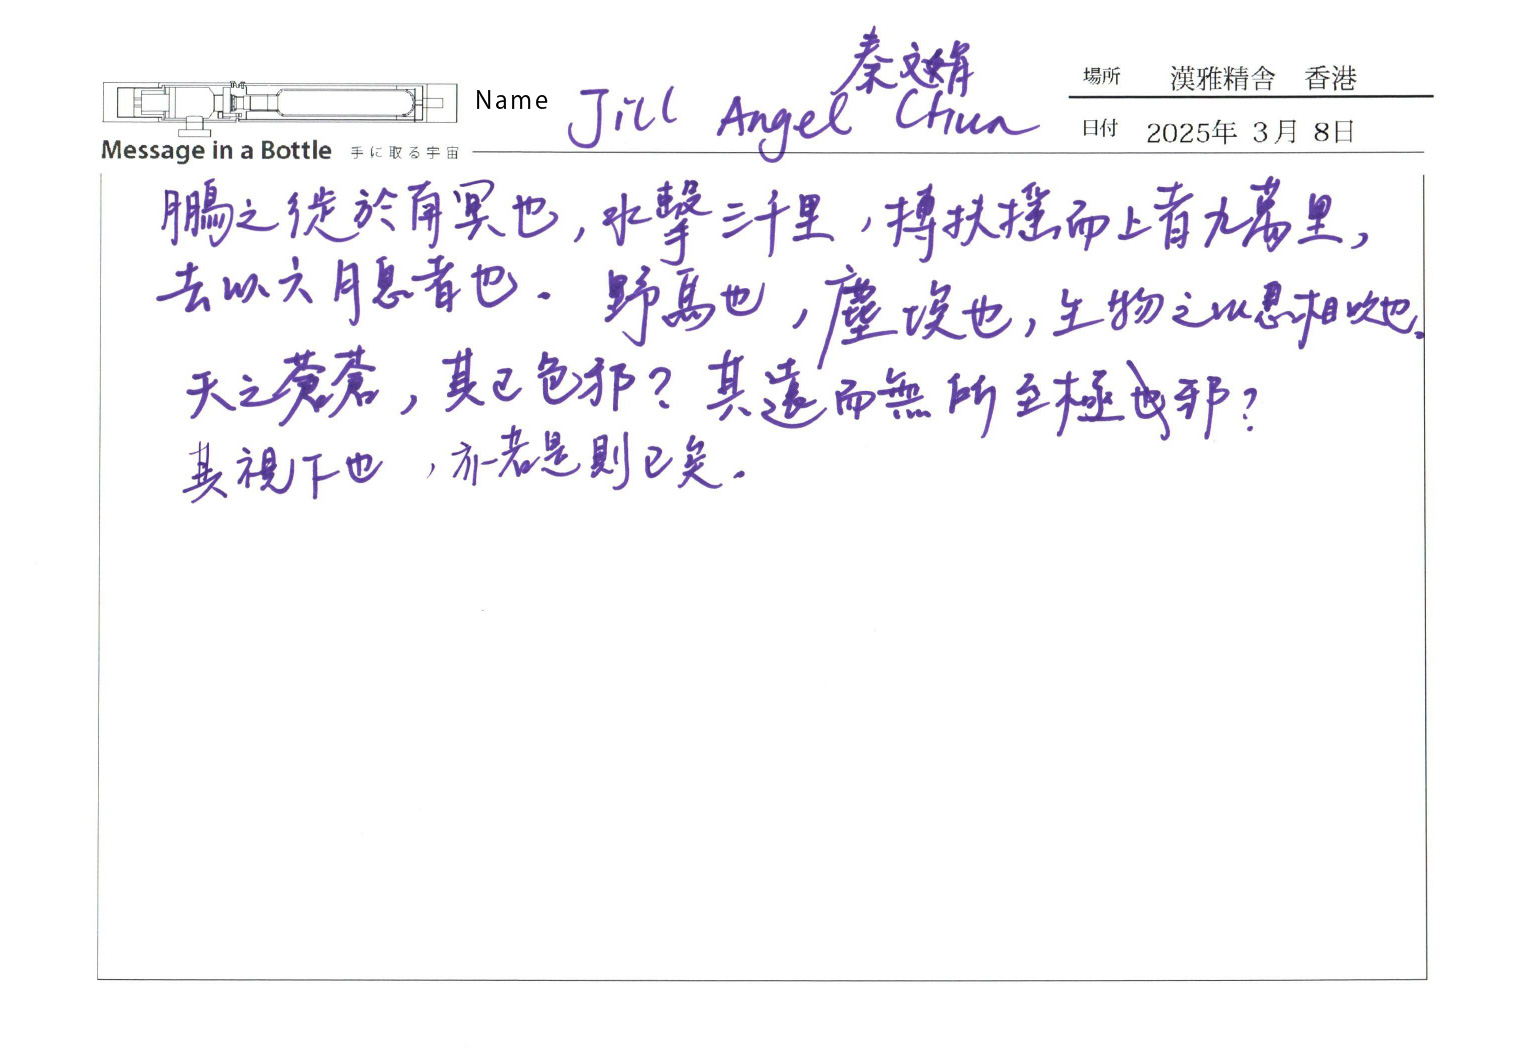 秦文娟
Name Jill Angel Chun
場所 漢雅精舎 香港
日付 2025年 3月 8日
Message in a Bottle 手に取る宇宙
鵬之徙於南冥也，水擊三千里，搏扶搖而上者九萬里，
去以六月息者也．野馬也，塵埃也，生物之以息相吹也．
天之蒼蒼，其已色邪？其遠而無所至極也邪？
其視下也，亦若是則已矣．